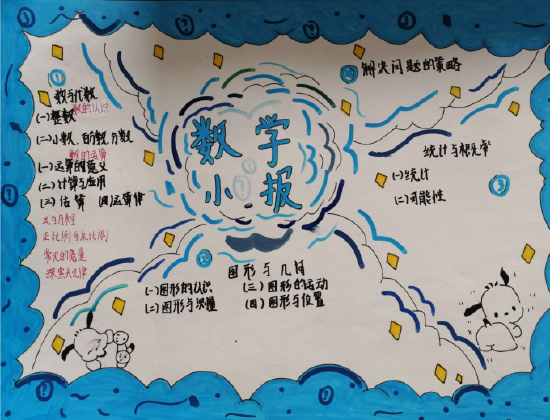 数学
小报
①
数与代数
数的认识
(一)整数
(二)小数、百分数、分数
数的运算
(一)运算的意义
(二)计算与应用
(三)估算 (四)运算律
式与方程
正比例与反比例
常见的量
探索规律
②
解决问题的策略
③
统计与概率
(一)统计
(二)可能性
图形与几何
(一)图形的认识
(二)图形与测量
(三)图形的运动
(四)图形与位置